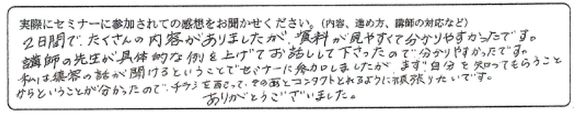 実際にセミナーに参加されての感想をお聞かせください。(内容、進め方、講師の対応など)
2日間で、たくさんの内容がありましたが、資料が見やすくて分かりやすかったです。
講師の先生が具体的な例を上げてお話しして下さったので分かりやすかったです。
私は接客の話が聞けるということでセミナーに参加しましたが、まず自分を知ってもらうこと
からということが分かったので、チラシを配って、そのあとコンタクトとれるように頑張りたいです。
ありがとうございました。